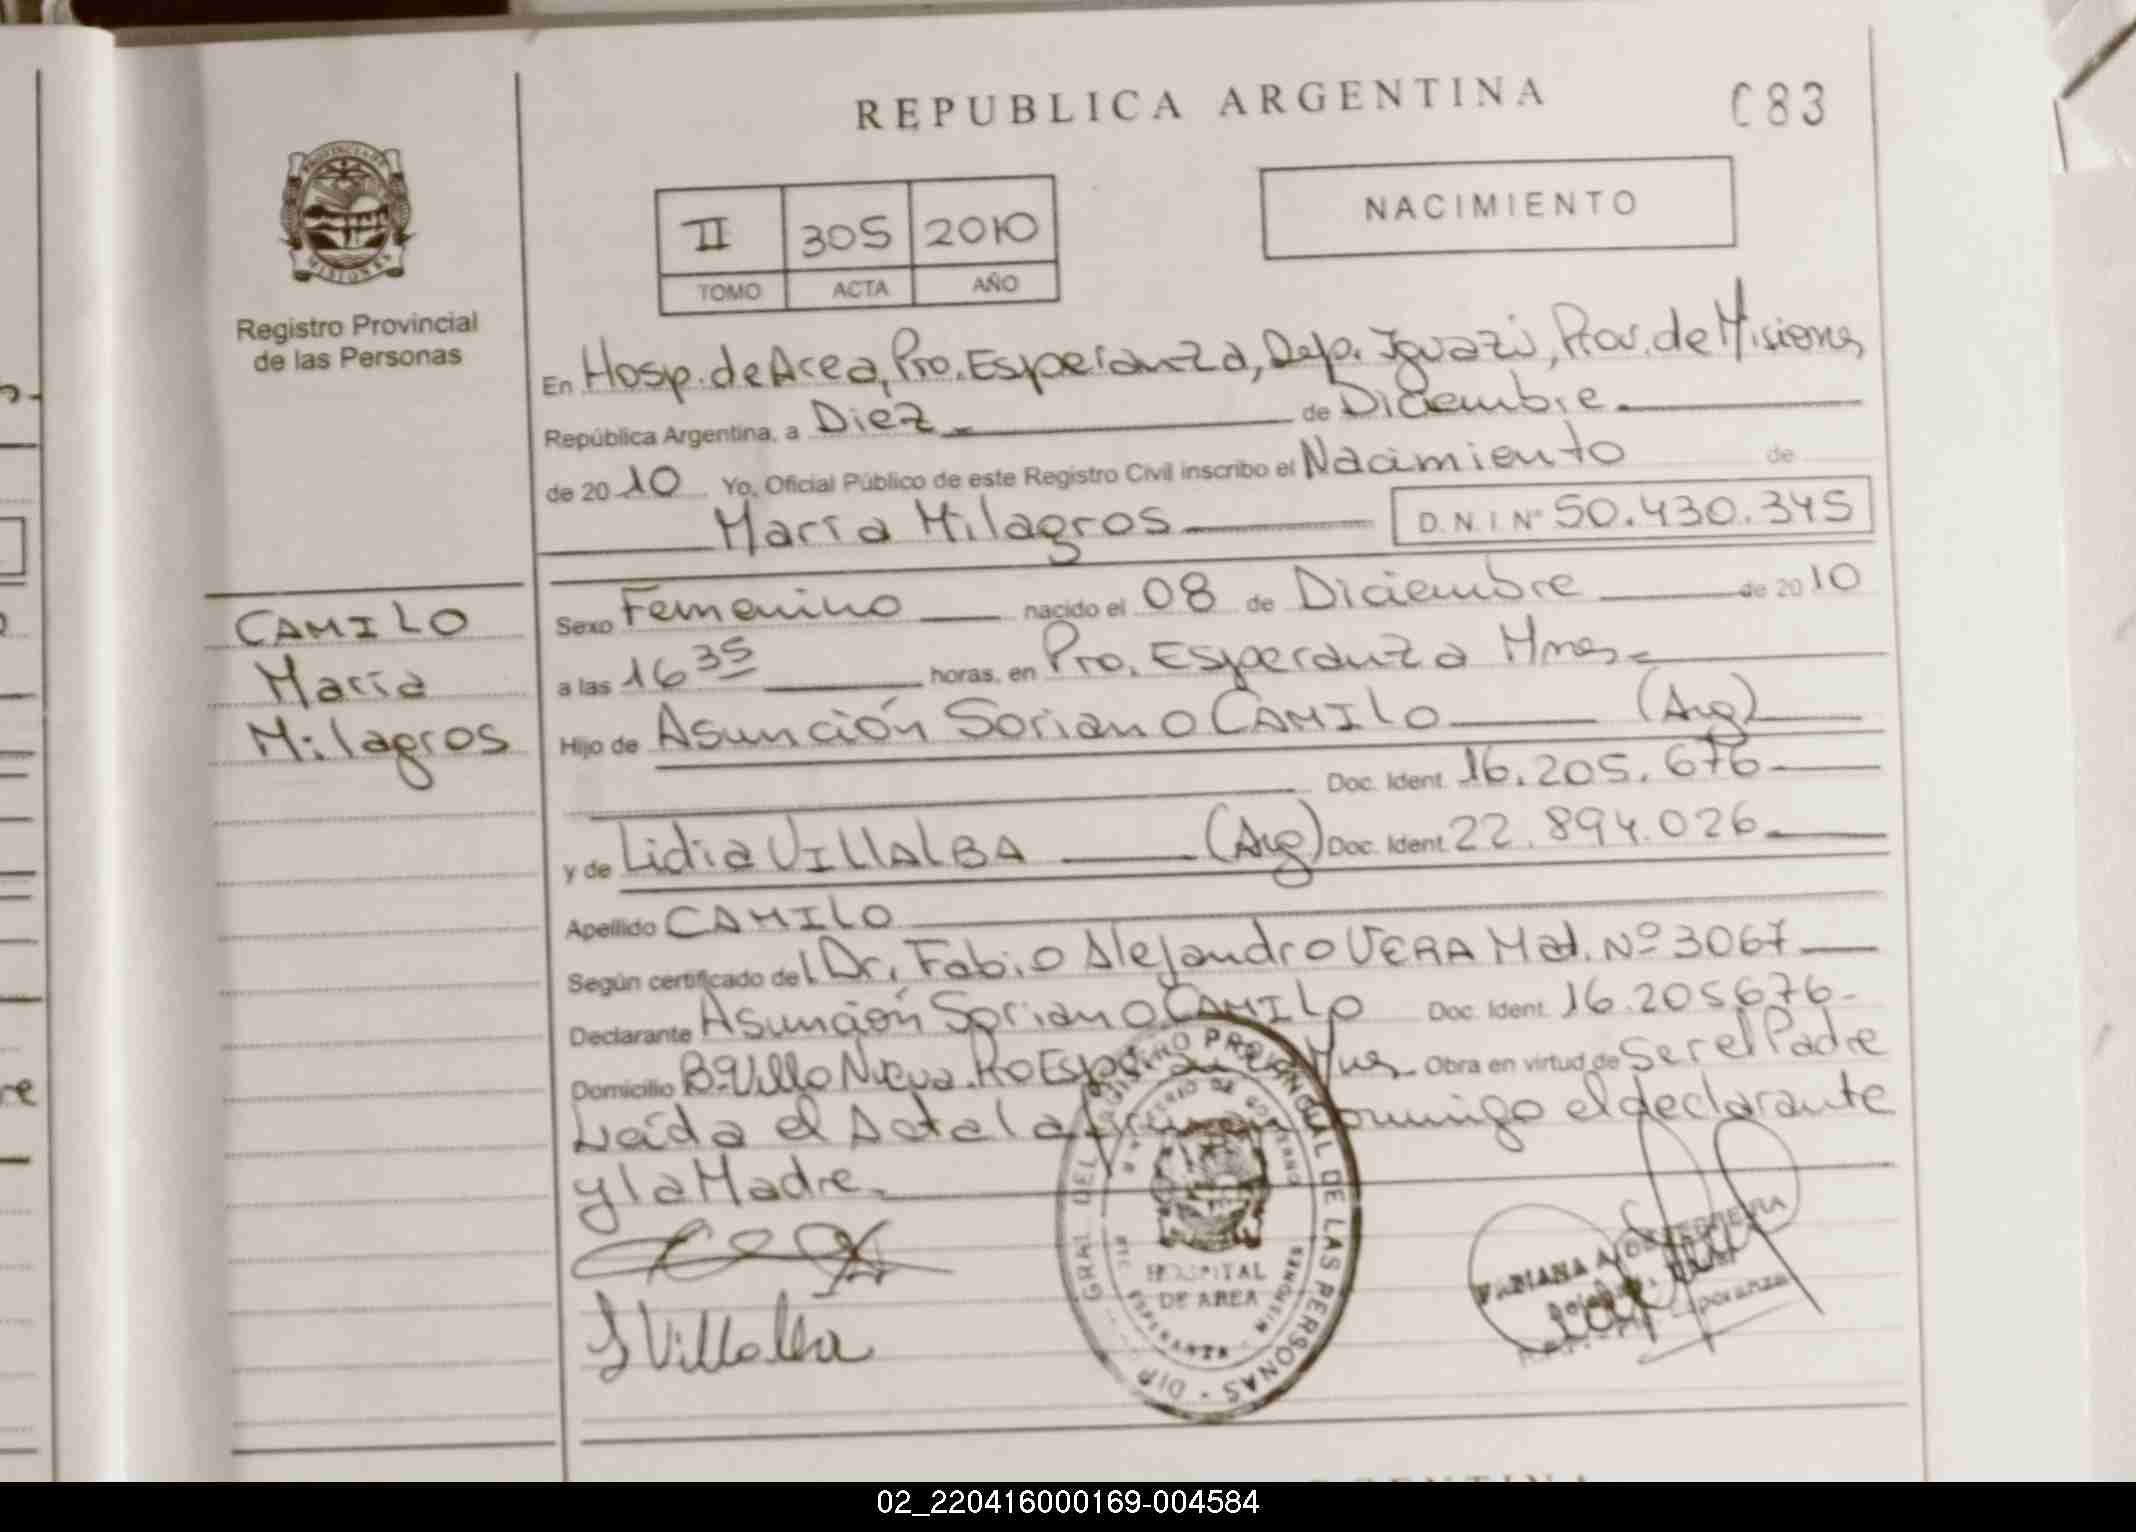 REPUBLICA ARGENTINA
C83
PROVINCIA DE
MISIONES
Registro Provincial
de las Personas
II 305 2010
TOMO ACTA AÑO
NACIMIENTO
En Hosp. de Area, Pto. Esperanza, Dep. Iguazú, Prov. de Misiones
República Argentina, a Diez de Diciembre
de 2010 Yo, Oficial Público de este Registro Civil inscribo el Nacimiento de
María Milagros D.N.I Nº 50.430.345
CAMILO
María
Milagros
Sexo Femenino nacido el 08 de Diciembre de 2010
a las 16 35 horas, en Pto. Esperanza Mnes.
Hijo de Asunción Soriano CAMILO (Arg)
Doc. Ident. 16.205.676
y de Lidia VILLALBA (Arg) Doc. Ident. 22.894.026
Apellido CAMILO
Según certificado del Dr. Fabio Alejandro VERA Mat. Nº 3067
Declarante Asunción Soriano CAMILO Doc. Ident. 16.205676-
Domicilio Bº Villa Nueva. Pto Esperanza Mnes. Obra en virtud de Ser el Padre
Leída el Acta la firman conmigo el declarante
y la Madre.
L Villalba
DIR. GRAL. DEL REGISTRO PROVINCIAL DE LAS PERSONAS
HOSPITAL
DE AREA
ESPERANZA - MISIONES
02_220416000169-004584